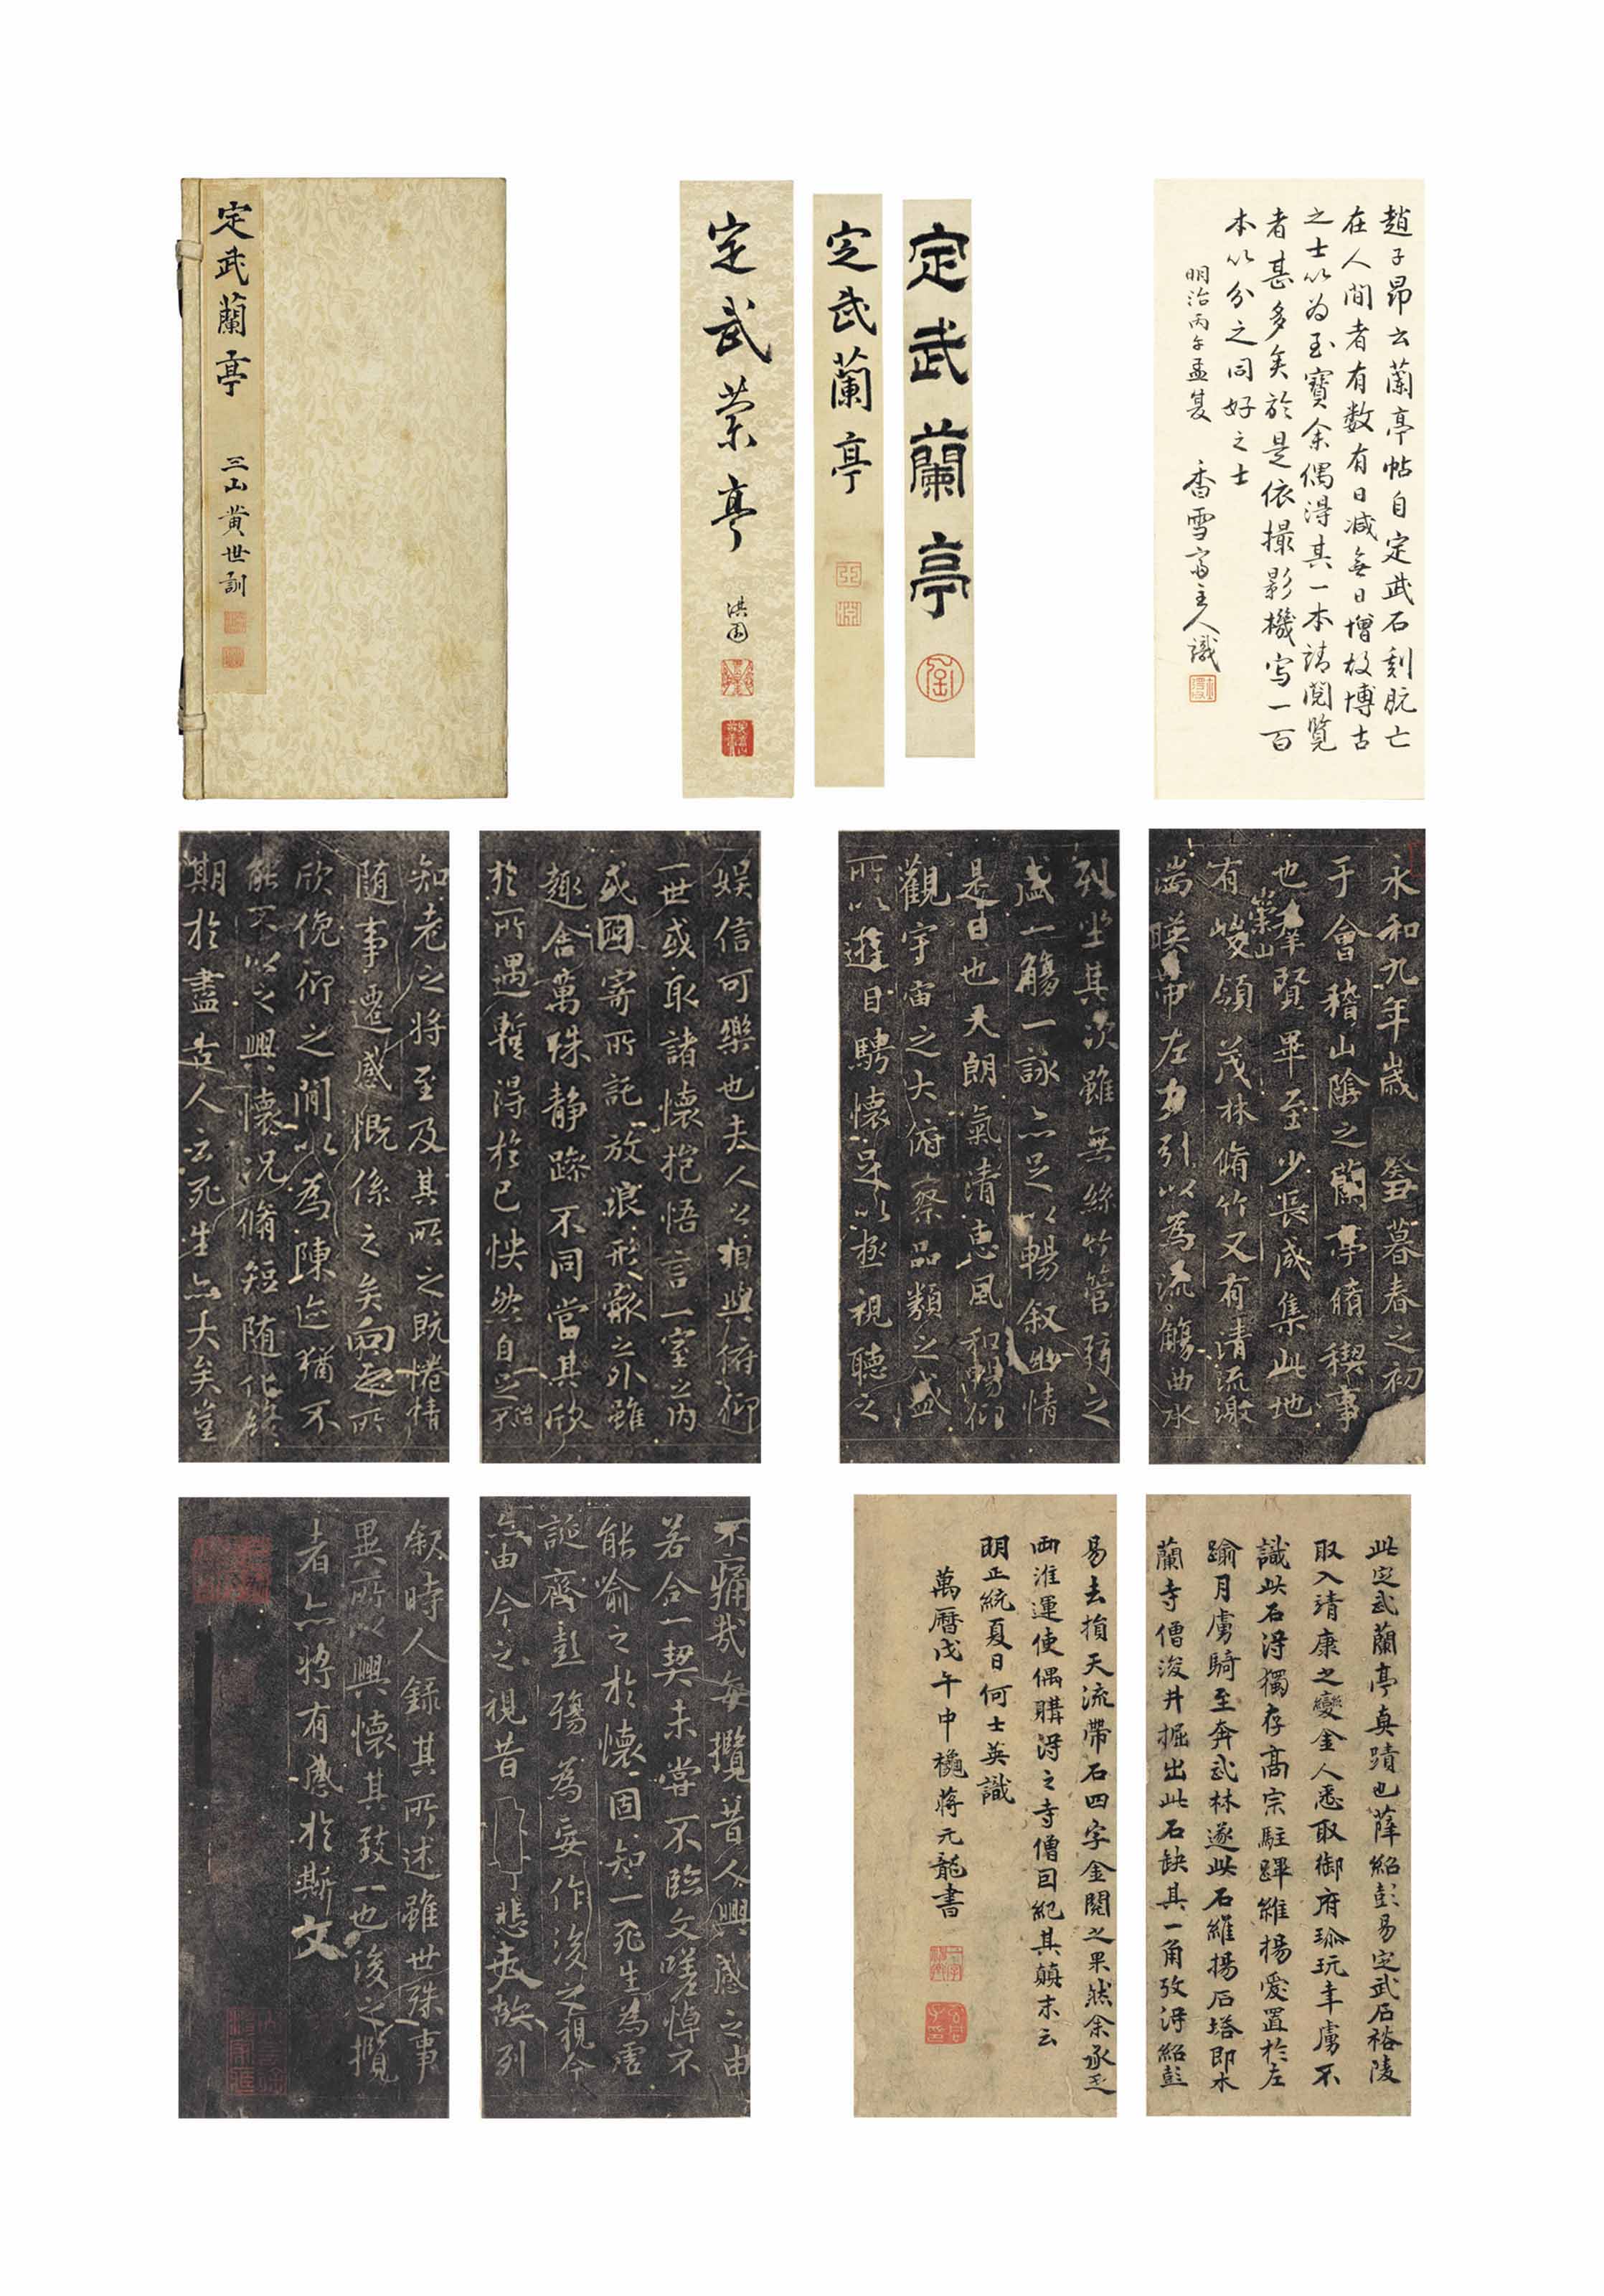 定武蘭亭
三山黃世訓
定武蘭亭
淇園
定武蘭亭
定武蘭亭
趙子昂云蘭亭帖自定武石刻既亡
在人間者有数有日减無日增故博古
之士以为至寶余偶得其一本請閲覧
者甚多矣於是依撮影機写一百
本以分之同好之士
明治丙午孟夏 香雪斎主人識
永和九年歲 癸丑暮春之初
于會稽山陰之蘭亭脩稧事
也羣賢畢至少長咸集此地
有崇山峻領茂林脩竹又有清流激
湍暎帶左右引以為流觴曲水
列坐其次雖無絲竹管弦之
盛一觴一詠亦足以暢叙幽情
是日也天朗氣清惠風和暢仰
觀宇宙之大俯察品類之盛
所以遊目騁懷足以極視聽之
娛信可樂也夫人之相與俯仰
一世或取諸懷抱悟言一室之內
或因寄所託放浪形骸之外雖
趣舍萬殊静躁不同當其欣
於所遇暫得於己怏然自足不
知老之將至及其所之既惓情
随事遷感慨係之矣向之所
欣俛仰之閒以為陳迹猶不
能不以之興懷況脩短随化終
期於盡古人云死生亦大矣豈
不痛哉每攬昔人興感之由
若合一契未嘗不臨文嗟悼不
能喻之於懷固知一死生為虛
誕齊彭殤為妄作後之視今
亦由今之視昔 悲夫故列
叙時人錄其所述雖世殊事
異所以興懷其致一也後之攬
者亦將有感於斯文
此定武蘭亭真蹟也薛紹彭易定武石裕陵
取入靖康之變金人悉取御府珎玩幸虜不
識此石淂獨存高宗駐蹕維楊愛置於左
踰月虜騎至奔武林遂此石維揚石塔即木
蘭寺僧浚井掘出此石缺其一角攷淂紹彭
易去損天流帶石四字金閱之果然余承乏
兩淮運使偶購淂之寺僧因紀其顛末云
明正統夏日何士英識
萬曆戊午中秋蔣元龍書